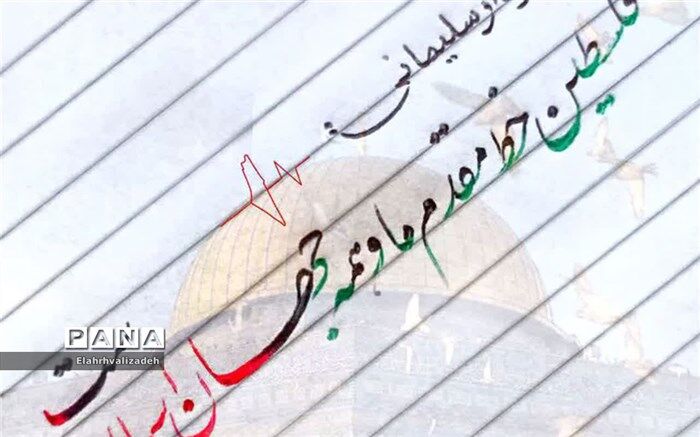 سلیمانی:
فلسطین خط مقدم ما و همه جهان
PANA
Elahrhvalizadeh